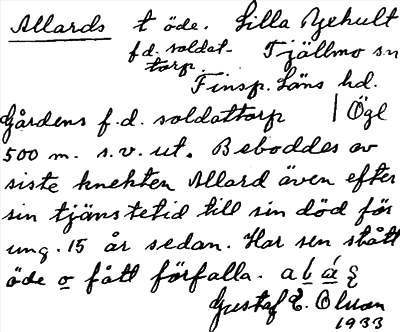 Allards t öde. Lilla Bjehult
f.d. soldat- Tjällmo sn
torp. Finsp. Läns hd.
Gårdens f.d. soldattorp | Ögl
500 m. s.v. ut. Beboddes av
siste knekten Allard även efter
sin tjänstetid till sin död för
ung. 15 år sedan. Har sen stått
öde o fått förfalla. a b á
Gustaf E. Olson
1933